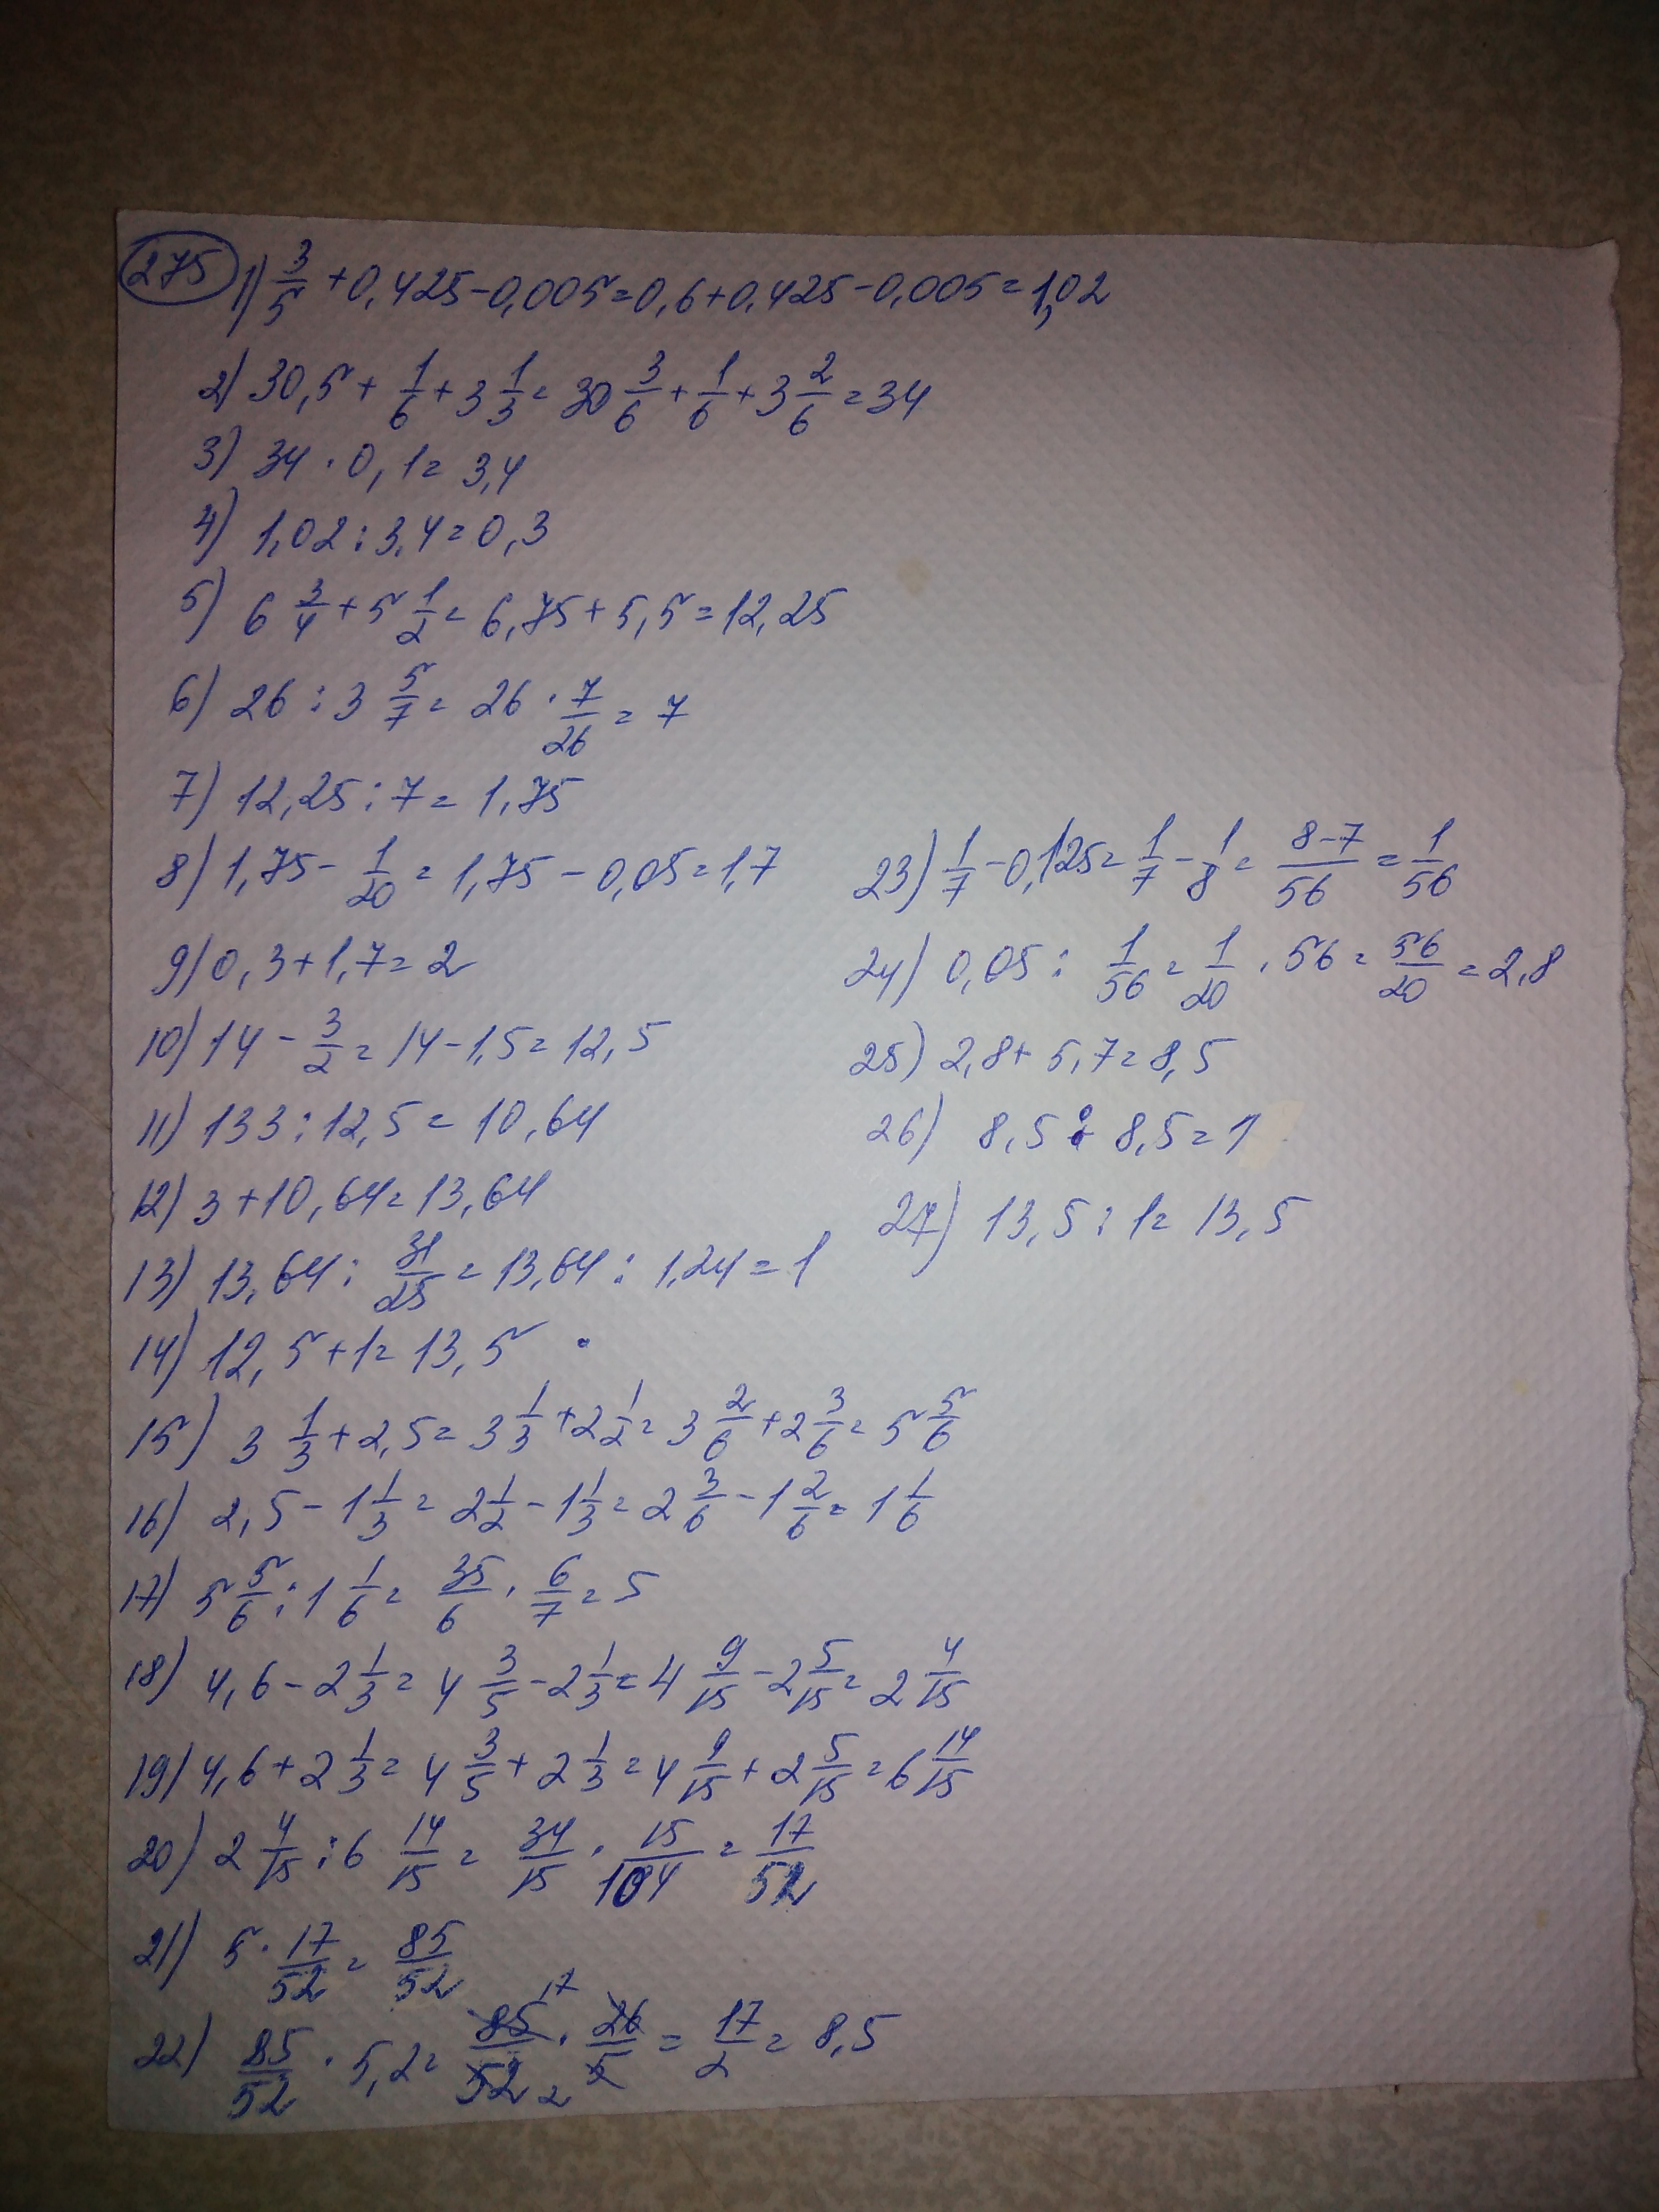 275 1) 3/5 + 0,425 - 0,005 = 0,6 + 0,425 - 0,005 = 1,02
2) 30,5 + 1/6 + 3 1/3 = 30 3/6 + 1/6 + 3 2/6 = 34
3) 34 · 0,1 = 3,4
4) 1,02 : 3,4 = 0,3
5) 6 3/4 + 5 1/2 = 6,75 + 5,5 = 12,25
6) 26 : 3 5/7 = 26 · 7/26 = 7
7) 12,25 : 7 = 1,75
8) 1,75 - 1/20 = 1,75 - 0,05 = 1,7
9) 0,3 + 1,7 = 2
10) 14 - 3/2 = 14 - 1,5 = 12,5
11) 133 : 12,5 = 10,64
12) 3 + 10,64 = 13,64
13) 13,64 : 31/25 = 13,64 : 1,24 = 1
14) 12,5 + 1 = 13,5
15) 3 1/3 + 2,5 = 3 1/3 + 2 1/2 = 3 2/6 + 2 3/6 = 5 5/6
16) 2,5 - 1 1/3 = 2 1/2 - 1 1/3 = 2 3/6 - 1 2/6 = 1 1/6
17) 5 5/6 : 1 1/6 = 35/6 · 6/7 = 5
18) 4,6 - 2 1/3 = 4 3/5 - 2 1/3 = 4 9/15 - 2 5/15 = 2 4/15
19) 4,6 + 2 1/3 = 4 3/5 + 2 1/3 = 4 9/15 + 2 5/15 = 6 14/15
20) 2 4/15 : 6 14/15 = 34/15 · 15/104 = 17/52
21) 5 · 17/52 = 85/52
22) 85/52 · 5,2 = 85 17/52 2 · 26/5 = 17/2 = 8,5
23) 1/7 - 0,125 = 1/7 - 1/8 = 8-7/56 = 1/56
24) 0,05 : 1/56 = 1/20 · 56 = 56/20 = 2,8
25) 2,8 + 5,7 = 8,5
26) 8,5 : 8,5 = 1
27) 13,5 : 1 = 13,5